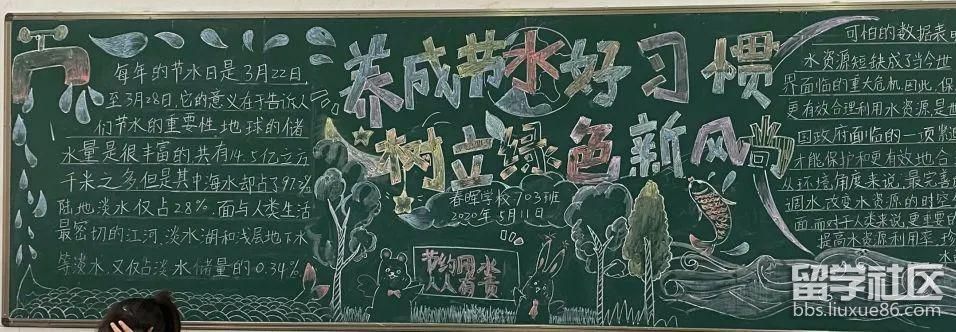 每年的节水日是3月22日,
至3月28日,它的意义在于告诉人
们节水的重要性,地球的储
水量是很丰富的,共有14.5亿立方
千米之多但是其中海水却占了97.3%
陆地淡水仅占2.8%,面与人类生活
最密切的江河、淡水湖和浅层地下水
等淡水,又仅占淡水储量的0.34%
养成节水好习惯
树立绿色新风尚
春晖学校703班
2020年5月11日
节约用水
人人有责
可怕的数据表
水资源短缺成了当今世
界面临的重大危机,因此,保
更有效合理利用水资源,是世
因政府面临的一项紧迫
才能保护和更有效地合
从环境角度来说,最完善
调水,改变水资源的时空
面,而对于人类来说,更重要的
提高水资源利用率,
留学社区
bbs.liuxue86.com